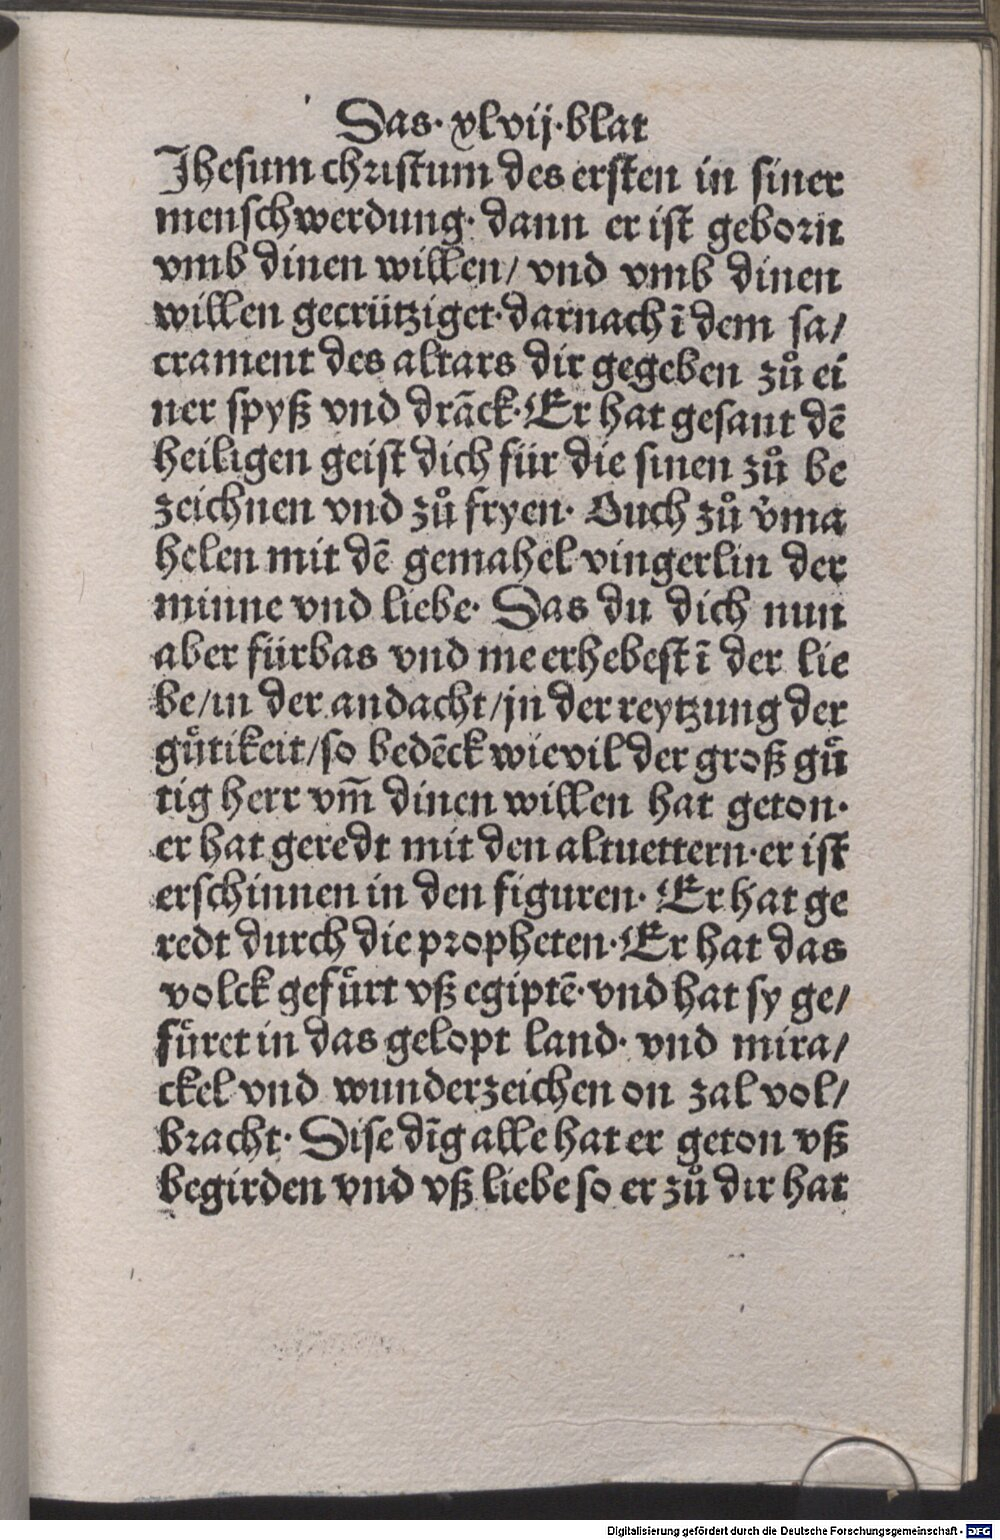 Das· xlvij·blat
Jhesum christum des ersten in siner
menschwerdung· dann er ist geborn
vmb dinen willen/ vnd vmb dinen
willen gecrütziget·darnach ī dem sa/
crament des altars dir gegeben zů ei
ner spyß vnd drāck·Er hat gesant dē
heiligen geist dich für die sinen zů be
zeichnen vnd zů fryen· Ouch zů v̉ma
helen mit dē gemahel vingerlin der
minne vnd liebe· Das du dich nun
aber fürbas vnd me erhebest ī der lie
be/in der andacht/jn der reytzung der
guͤtikeit/so bedēck wievil der groß guͤ
tig herr vm̄ dinen willen hat geton·
er hat geredt mit den altuettern·er ist
erschinnen in den figuren· Er hat ge
redt durch die propheten·Er hat das
volck gefuͤrt vß egiptē·vnd hat sy ge/
fuͤret in das gelopt land· vnd mira/
ckel vnd wunderzeichen on zal vol/
bracht· Dise dīg alle hat er geton vß
begirden vnd vß liebe so er zů dir hat
Digitalisierung gefördert durch die Deutsche Forschungsgemeinschaft - DFG